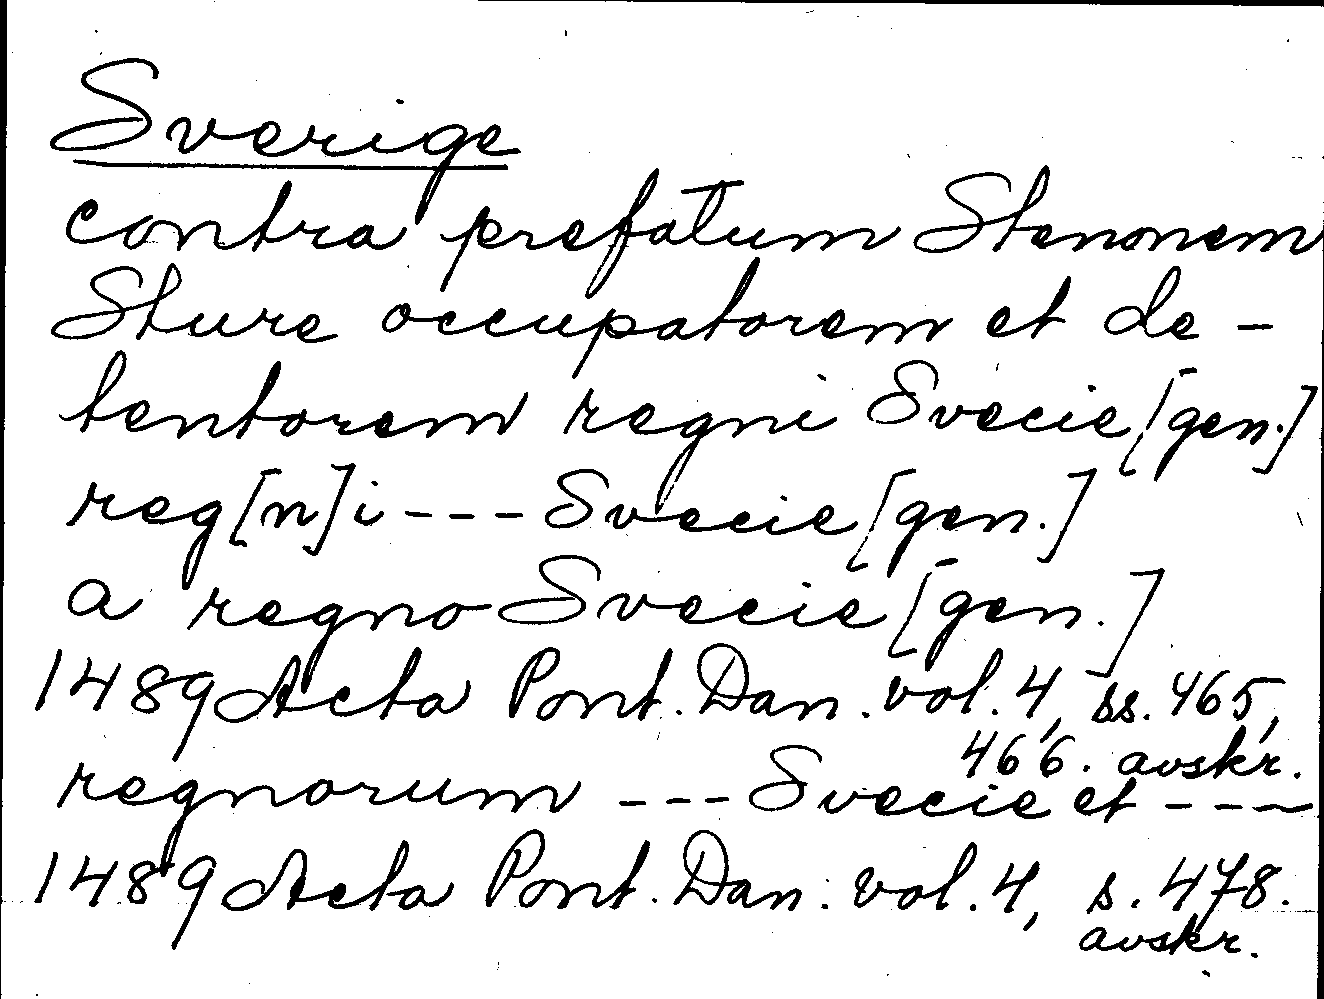 Sverige
contra prefatum Stenonem
Sture occupatorem et de-
tentorem regni Svecie [gen.]
reg[n]i --- Svecie [gen.]
a regno Svecie [gen.]
1489 Acta Pont. Dan. vol. 4, ss. 465,
466. avskr.
regnorum --- Svecie et ---
1489 Acta Pont. Dan. vol. 4, s. 478.
avskr.